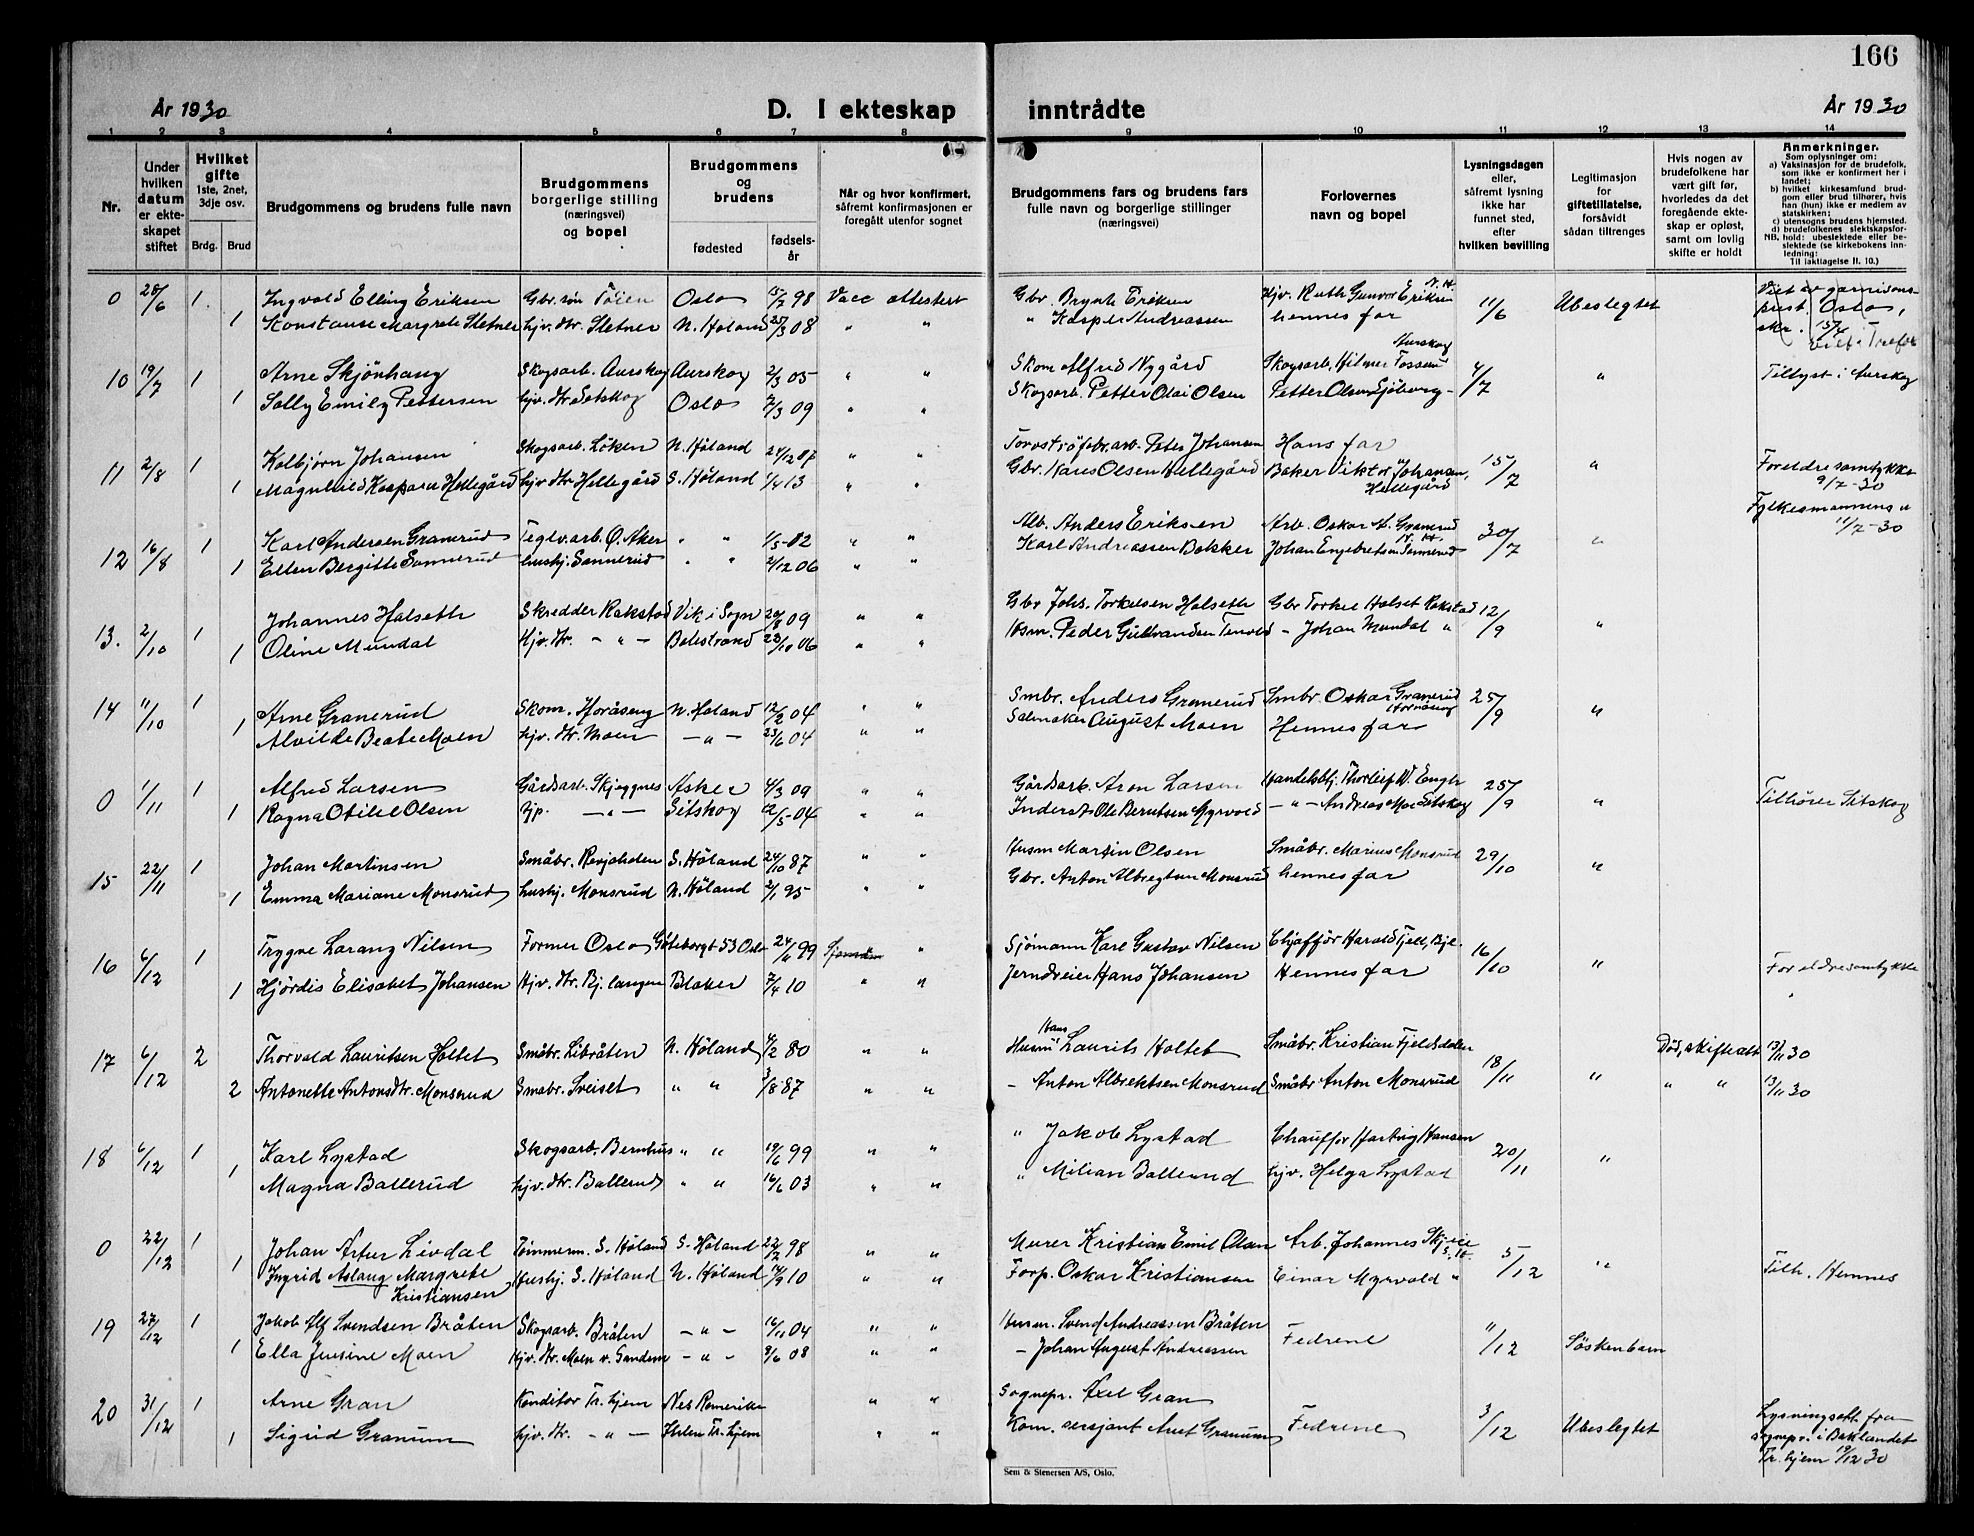 166
År 1930 D. I ekteskap inntrådte År 1930
1 2 3 4 5 6 7 8 9 10 11 12 13 14
Nr.
Under hvilken datum er ekte-skapet stiftet
Hvilket gifte 1ste, 2net, 3dje osv.
Brdg. Brud
Brudgommens og brudens fulle navn
Brudgommens borgerlige stilling (næringsvei) og bopel
Brudgommens og brudens
fødested fødsels-år
Når og hvor konfirmert, såfremt konfirmasjonen er foregått utenfor sognet
Brudgommens fars og brudens fars fulle navn og borgerlige stillinger (næringsvei)
Forlovernes navn og bopel
Lysningsdagen eller, såfremt lysning ikke har funnet sted, efter hvilken bevilling
Legitimasjon for giftetillatelse, forsåvidt sådan tiltrenges
Hvis nogen av brudefolkene har vært gift før, hvorledes da det foregående ekte-skap er opløst, samt om lovlig skifte er holdt
Anmerkninger.
Som oplysninger om:
a) Vaksinasjon for de brudefolk, som ikke er konfirmert her i landet;
b) hvilket kirkesamfund brud-gom eller brud tilhører, hvis han (hun) ikke er medlem av statskirken;
c) utensogns brudens hjemsted.
d) brudefolkenes slektskapsfor-hold: ubeslektede eller be-slektede (se kirkebokens inn-ledning:
NB.
Til iakttagelse II. 10.)
0 28/6 1 Ingvald Elling Eriksen Gbr. søn Töien Oslo 15/2 98 Vacc attestert Gbr. Brynh Eriksen Hjv. Ruth Gunvor Eriksen N. H. 11/6 Ubeslegtet Viet av garnisons-
1 Konstanse Margrete Sletner hjv. dtr. Sletner N. Höland 25/3 08 " " " Kasper Andreassen hennes far prest. Oslo,
skr. 15/4
10 19/7 1 Arne Skjönhaug Skogsarb. Aurskog Aurskog 2/3 05 " " Skom Alfred Nygård Skogsarb. Hilmer Fossum Aurskog 4/7 " Tillyst i Aurskog
1 Solly Emily Pettersen hjv. dtr Setskog Oslo 7/3 09 " " Skogsarb. Petter Olai Olsen Petter Olsen Sjöberg -
11 2/8 1 Kolbjørn Johansen Skogsarb. Löken N. Höland 24/12 07 " " Torvströfabr. arb. Peter Johansen Hans far 15/7 " Foreldresamtykke 9/7-30
1 Magnhild Kaspara Hellegård hjv dtr Hellegård S. Höland 1/4 13 " " Gbr. Hans Olsen Hellegård Baker Viktor Johansen, Hellegård
Fylkesmannens " 11/7-30
12 16/8 1 Karl Andersen Granerud Teglv. arb. Ö. Aker " " 1/5-02 " " Alb. Anders Eriksen Arb. Oskar A. Granerud N. H. 30/7 "
1 Ellen Bergitte Sannerud hushj. Sannerud " " 2/12 06 " " Karl Andreassen Bakker Johan Engebretsen Sannerud
13. 2/10 1 Johannes Halseth Skredder Rakstad Vik i Sogn 20/8 09 " " Gbr Johs. Torkelsen Halseth Gbr Torkel Halset Rakstad 12/9 "
1 Oline Mundal Hjv. dtr. - " - Balestrand 23/10 06 " " Hsm. Peder Gullvandsen - Johan Mundal "
14 11/10 1 Arne Granerud Skom. Horåseng N. Höland 12/2 04 " " Smbr. Anders Granerud Smbr. Oskar Granerud 25/9 "
1 Alvilde Beate Moen hjv. dtr. Moen - " - 23/6 04 " " Salmaker August Moen Hennes far
0 1/11 1 Alfred Larsen Gårdsarb. Skjeggnes Asker 4/3 09 " " Gårdsarb. Aron Larsen Handelsbtj. Thorleif N. Engh 25/9 " Tilhører Setskog
1 Ragna Otilie Olsen Hjp. - " - Setskog 12/5-04 " " Inderst Ole Berntsen Myrvold - " - Andreas Moe Setskog
15 22/11 1 Johan Martinsen Småbr. Revjeholen S. Höland 24/10 87 " " Husm Martin Olsen Småbr. Marius Monsrud 29/10 "
1 Emma Mariane Monsrud hushj. Monsrud N. Höland 2/1 95 " " Gbr. Anton Albregtsen Monsrud hennes far
16 6/12 1 Trygve Larang Nilsen Former Oslo Göteborgt 53 Oslo 24/11 99 " Sjömann Karl Gustav Nilsen Chjafför Harald Fjell, Bjl. 16/10 " Foreldresamtykke
1 Hjördis Elisabet Johansen Hjv. dtr. Bj. langen Blaker 7/4 10 " " Jerndreier Hans Johansen Hennes far "
17 6/12 2 Thorvald Lauritsen Holtet Småbr. Libråten N. Höland 4/2 80 " " Husm Hans Laurits Holteb Småbr. Kristian Fjeldsdalen 18/11 " Död, skifteatt 13/11 30
2 Antonette Antonsdtr. Monsrud Småbr. Sveiset " " 3/8-87 " " - Anton Albrektsen Monsrud Småbr Anton Monsrud " " 13/11 30
18 6/12 1 Karl Lystad Skogsarb. Bernhus " " 19/6 99 " " " Jakob Lystad Chauffør Hartvig Hansen 20/11 "
1 Magna Ballerud hjv. dtr. Ballerud " " 16/6 03 " " " Milian Ballerud hjv. Helga Lystad
0 22/12 1 Johan Artur Livdal Tömmerm. S. Höland S. Höland 22/2 98 " " Murer Kristian Emil Olsen Arb. Johannes S. H. 5/12 " Tilh. Hemnes
1 Ingrid Aslaug Margrete Kristiansen Hushj. S. Höland N. Höland 14/9 10 " " Forp. Oskar Kristiansen Einar Myrvold "
19 27/12 1 Jakob Alf Svendsen Bråten Skogsarb. Bråten - " - 16/11 04 " " Husm. Svend Andreassen Bråten Fedrene 11/12 Söskenbarn
1 Ella Jusine Moen Hjv. dtr. Moen v. Sandem - " - 9/6 08 " " - Johan August Andreassen
20 31/12 1 Arne Gran Konditor Tr. hjem Nes Romerike " " Sognepr. Axel Gran Fedrene 3/12 Ubeslegtet Lysningsatt fra
1 Sigrid Granum hjv. dtr. - " - Tr. hjem " " Kom. sersjant Granum sognepr. i Baklandet
Tr. hjem 19/12 30
Sem & Stenersen A/S, Oslo.